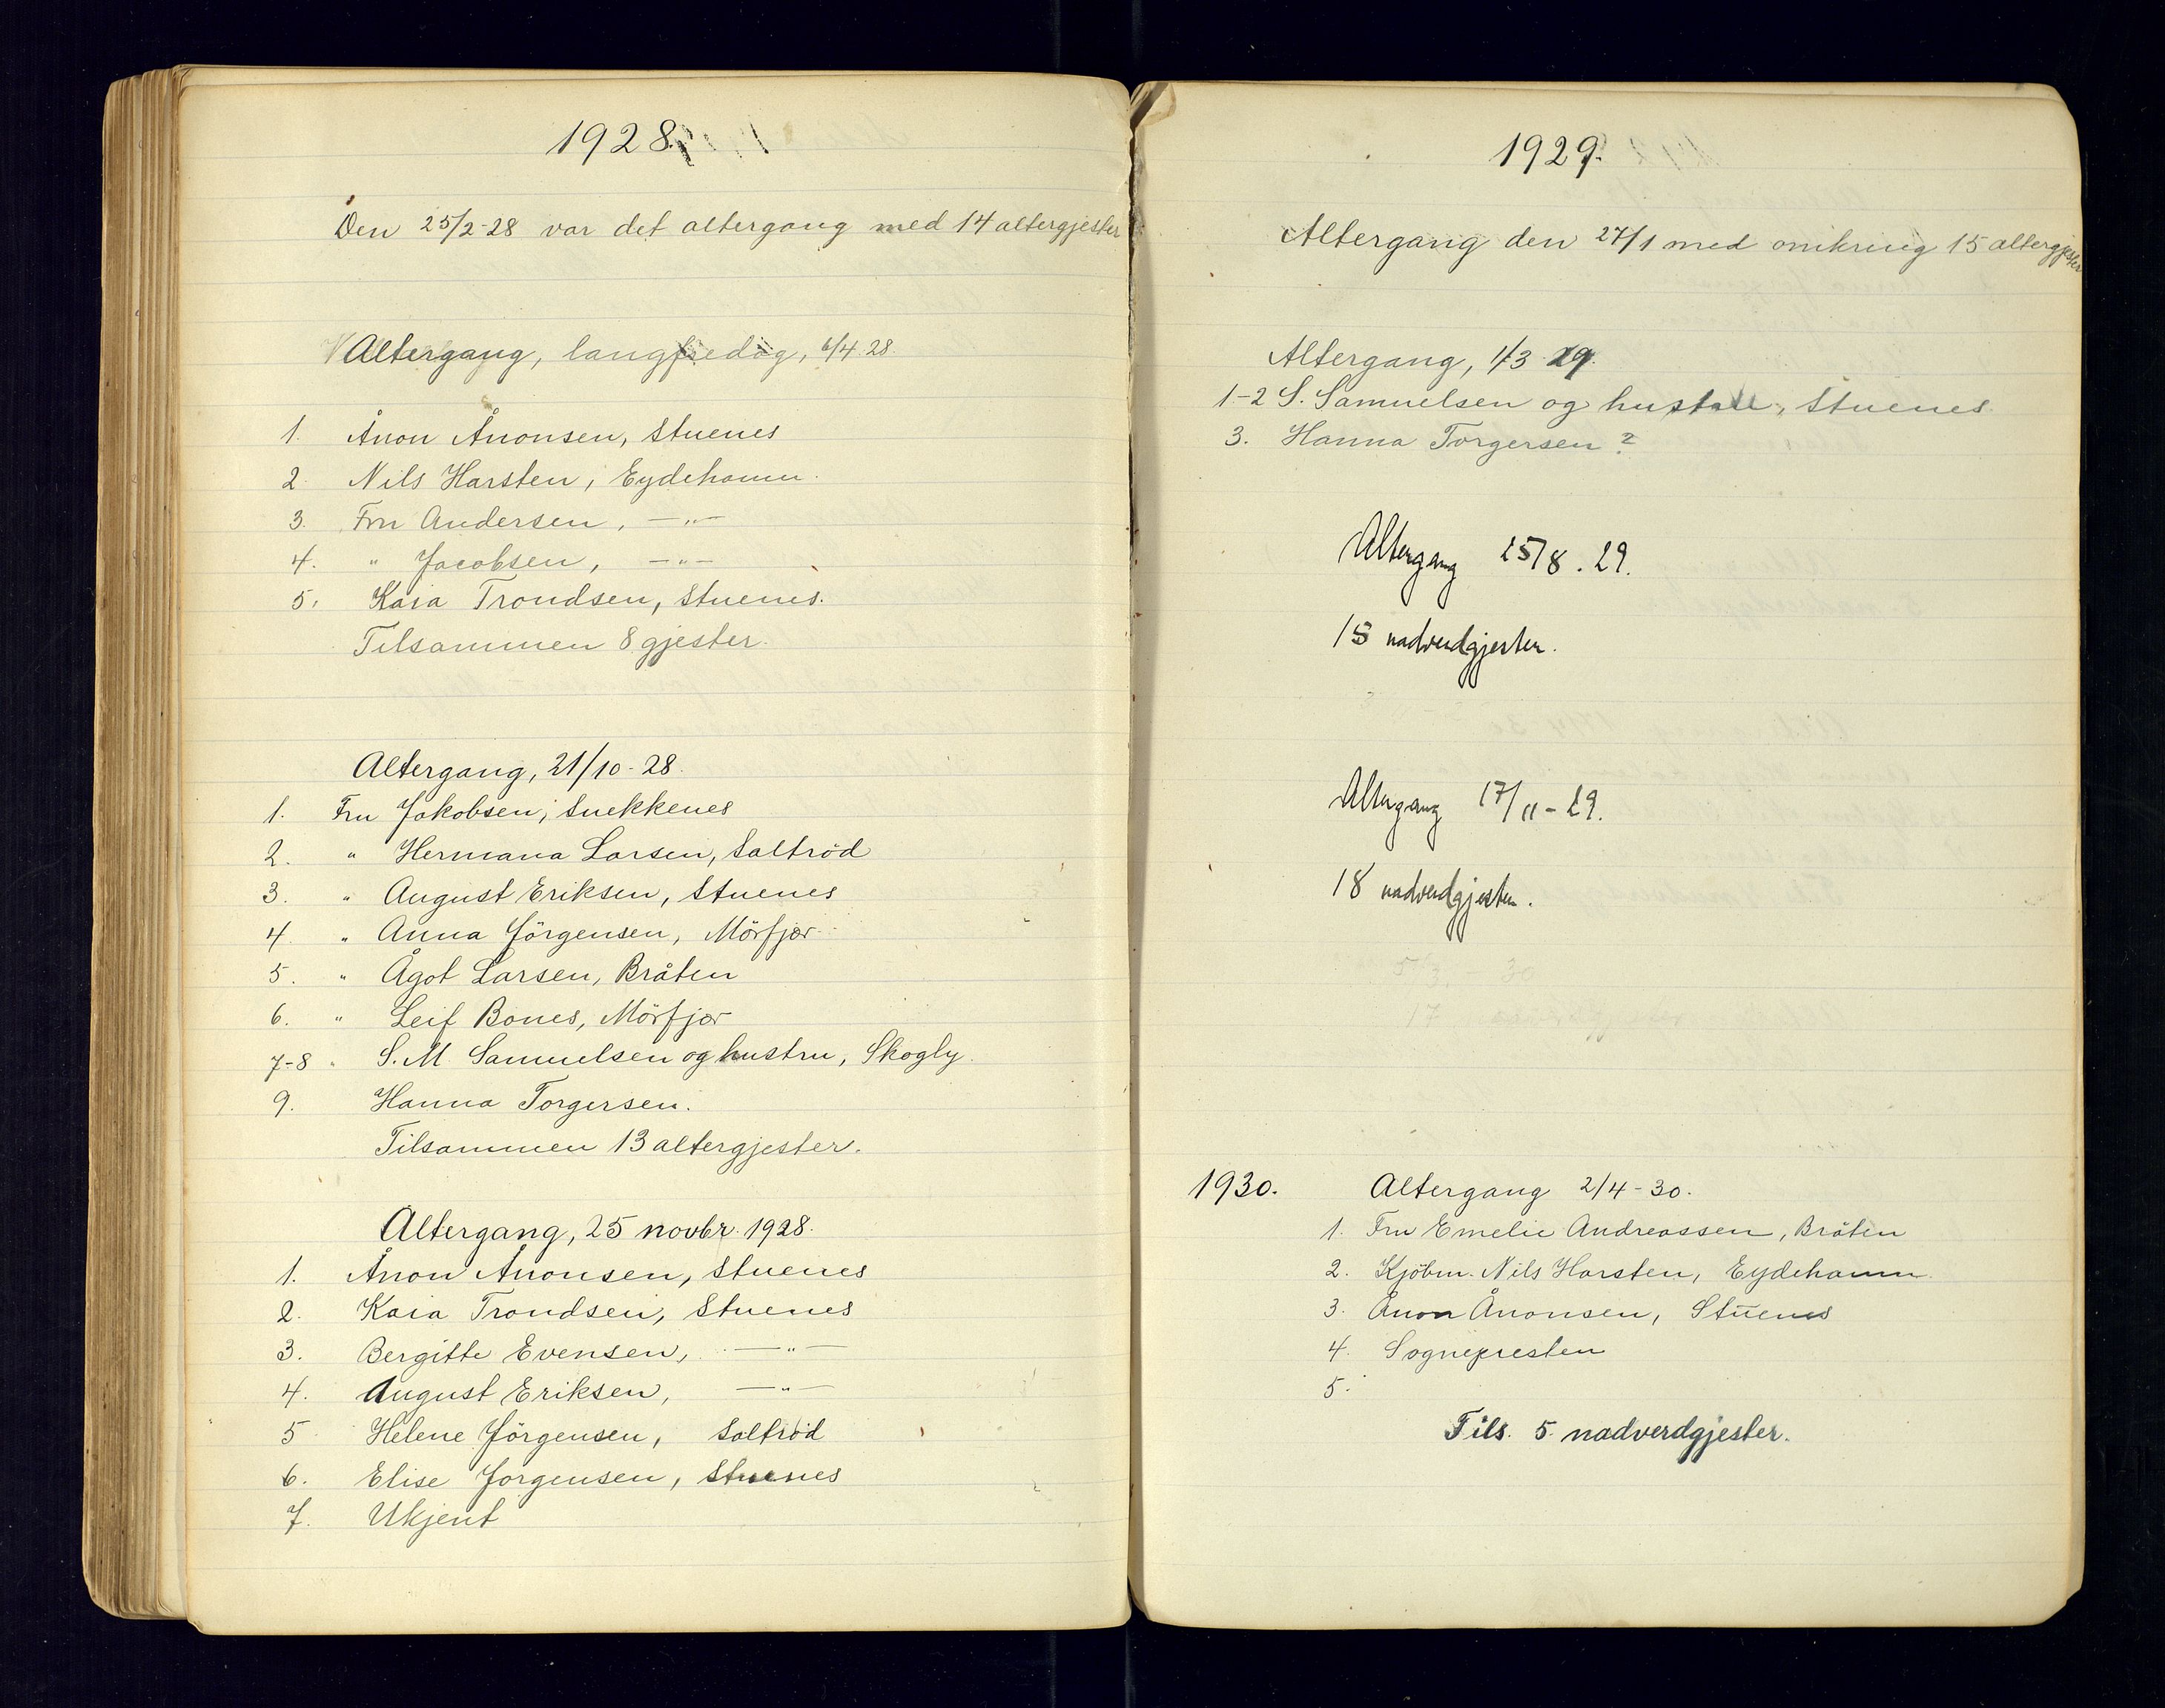 1928.
Den 25/2-28 var det altergang med 14 altergjester
Altergang, langfredag, 6/4 28.
1. Ånon Ånonsen, Stuenes
2. Nils Harsten, Eydehamn.
3. Fru Andersen, —"—
4. " Jacobsen, —"—
5. Kaia Trondsen, Stuenes.
Tilsammen 8 gjester.
Altergang, 21/10-28.
1. Fru Jakobsen, Snekkenes
2. " Hermana Larsen, Saltröd
3. " August Eriksen, Stuenes
4. " Anna Jörgensen, Mörfjær
5. " Ågot Larsen, Bråten
6. " Leif Bones, Mörfjær
7-8 " S. M. Samuelsen og hustru, Skogly.
9. Hanna Torgersen.
Tilsammen 13 altergjester.
Altergang, 25 novbr. 1928.
1. Ånon Ånonsen, Stuenes
2. Kaia Trondsen, Stuenes
3. Bergitte Evensen, —"—
4. August Eriksen, —"—
5 Helene Jörgensen, Saltröd
6. Elise Jorgensen, Stuenes
7. Ukjent
1929.
Altergang den 27/1 med omkring 15 altergjester
Altergang, 1/3 29.
1-2 S. Samuelsen og hustru, Stuenes.
3. Hanna Torgersen?
Altergang 25/8. 29.
15 nadverdgjester.
Altergang 17/11-29.
18 nadverdgjester.
5/3. - 30
17 nadverdgjester
1930. Altergang 2/4-30.
1. Fru Emelie Andreassen, Bråten
2. Kjöbm. Nils Harsten, Eydehamn.
3. Ånon Ånonsen, Stuenes
4. Sognepresten
5.
Tils. 5 nadverdgjester.